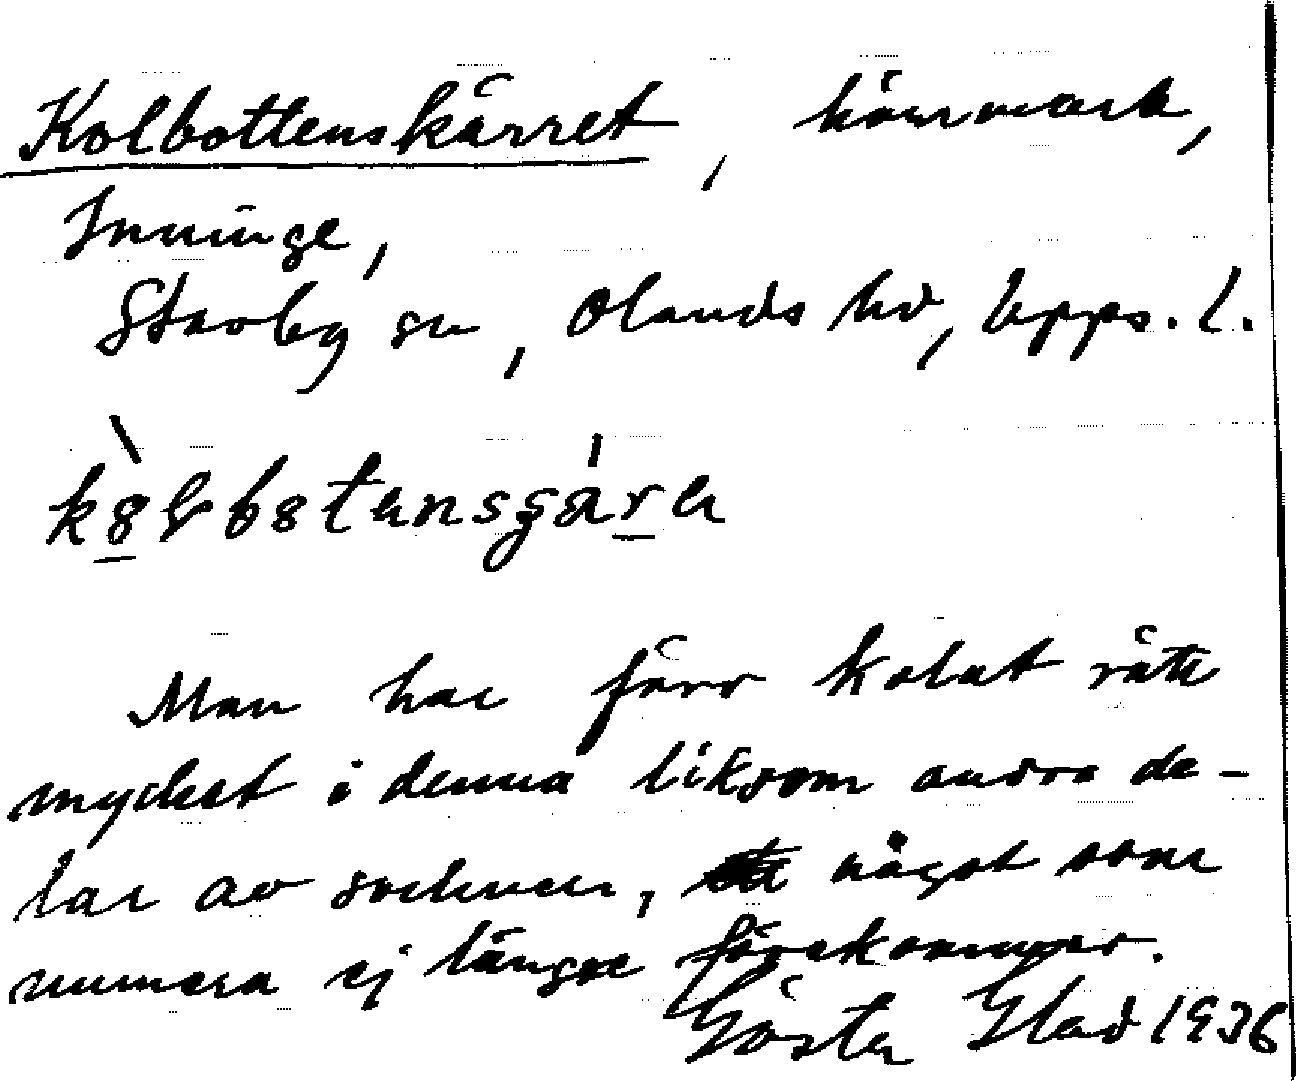 Kolbottenskärret, kärrmark,
Inninge,
Stavby sn, Olands hd, Upps. l.
Man har förr kolat rätt
mycket i denna liksom andra de-
lar av socknen, något som
numera ej längre förekommer.
Gösta Glad 1936